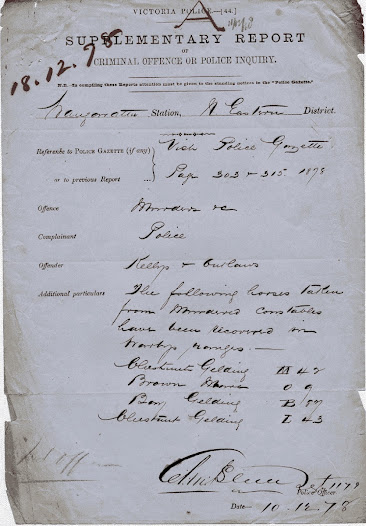 VICTORIA POLICE.—[44.]
A
18.12.78
SUPPLEMENTARY REPORT
OF
CRIMINAL OFFENCE OR POLICE INQUIRY.
N.B.—In compiling these Reports attention must be given to the standing notices in the "Police Gazette."
Wangaratta Station, N Eastern District.
Reference to POLICE GAZETTE (if any) Vide Police Gazette
or to previous Report Page 303 & 315 1878
Offence Murders &c
Complainant Police
Offender Kellys & Outlaws
Additional particulars The following horses taken
from Murdered Constables
have been recovered in
Warbys ranges.—
Chestnut Gelding M 42
Brown Mare O 9
Bay Gelding B 87
Chestnut Gelding L 43
Police Officer
Date 10.12.78